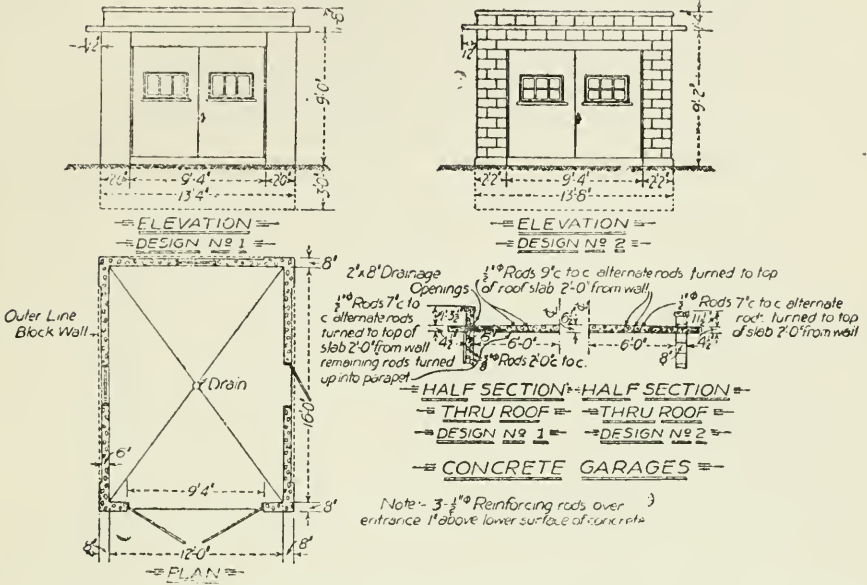 1'-8"
12"
9'-0"
2'0" 9'-4" 2'0"
13'-4"
3'-0"
ELEVATION
DESIGN Nº 1
1'-4"
12"
9'-2"
2'2" 9'-4" 2'2"
13'-8"
ELEVATION
DESIGN Nº 2
8"
Outer Line
Block Wall
Drain
16'-0"
6"
9'-4"
8"
8" 12'-0" 8"
PLAN
2"x8" Drainage
Openings
½"ᶲ Rods 9"c to c alternate rods turned to top
of roof slab 2'-0" from wall
½"ᶲ Rods 7"c to
c alternate rods
turned to top of
slab 2'-0" from wall
remaining rods turned
up into parapet
4½"
6"
6'-0"
⅜"ᶲ Rods 2'0"c to c.
6'-0"
8"
4½"
½"ᶲ Rods 7"c to c alternate
rods turned to top
of slab 2'-0" from wall
HALF SECTION
THRU ROOF
DESIGN Nº 1
HALF SECTION
THRU ROOF
DESIGN Nº 2
CONCRETE GARAGES
Note:- 3-½"ᶲ Reinforcing rods over
entrance 1" above lower surface of concrete